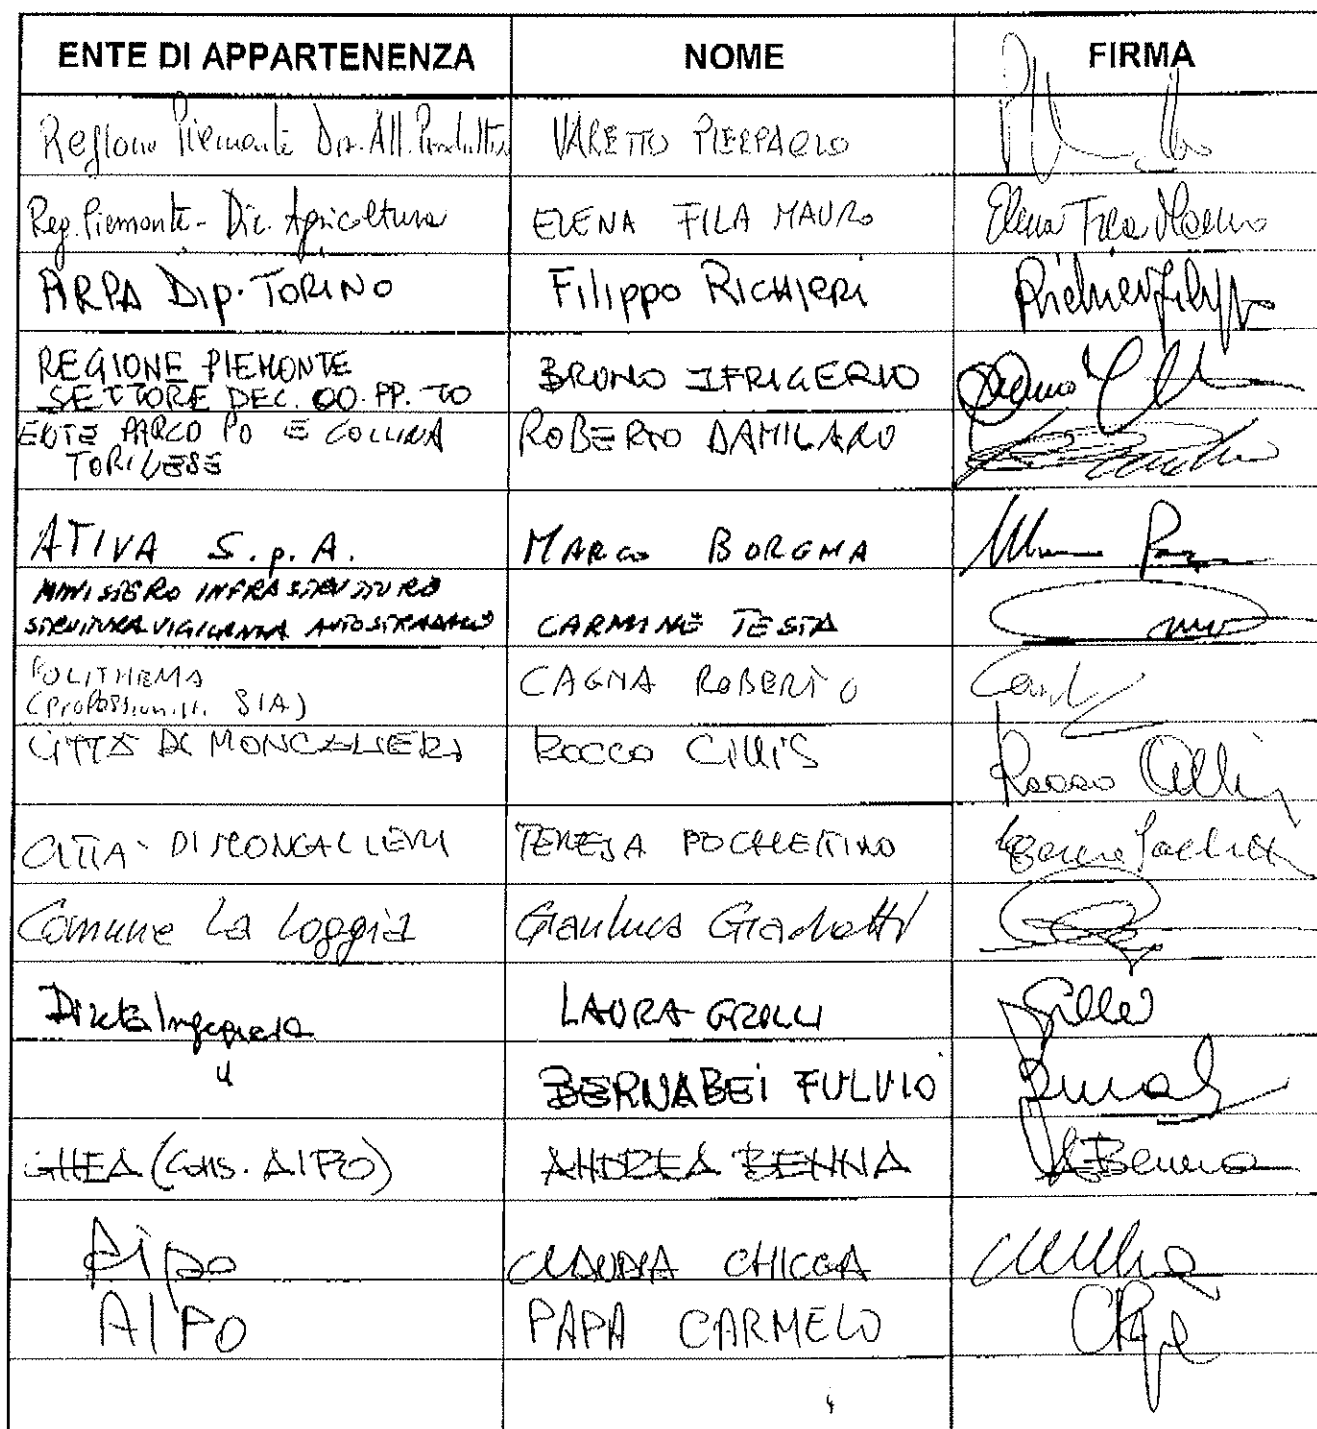 ENTE DI APPARTENENZA NOME FIRMA
Regione Piemonte Dir. Att. Produttive VARETTO PIERPAOLO
Reg. Piemonte - Dir. Agricoltura ELENA FILA MAURO Elena Fila Mauro
ARPA Dip. TORINO Filippo RICHIERI Richieri Filippo
REGIONE PIEMONTE
SETTORE DEC. OO. PP. TO BRUNO IFRIGERIO Bruno
ENTE PARCO PO E COLLINA
TORINESE ROBERTO DAMILANO
ATIVA S.p.A. MARCO BORGNA
MINISTERO INFRASTRUTTURE
STRUTTURA VIGILANZA AUTOSTRADALE CARMINE TESTA
POLITHEMA CAGNA ROBERTO
(professionisti SIA)
CITTÀ DI MONCALIERI ROCCO CILLIS Rocco Cillis
CITTA' DI MONCALIERI TERESA POCHETTINO
Comune La Loggia Gianluca Giachetti
Dizeta Ingegneria LAURA GRILLI Grilli
" BERNABEI FULVIO
GHEA (Cons. AIPO) ANDREA BENNA A Benna
Aipo CLAUDIA CHICCA
AIPO PAPA CARMELO